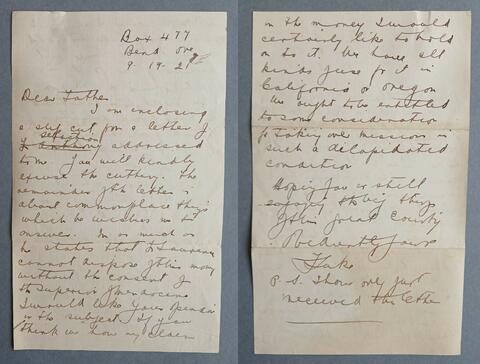 Box 477
Bend Ore
9-19-21
Dear Father
I am enclosing
a slip cut from a letter of
selection
Anthony addressed
to me. You will kindly
excuse the cutting. The
remainder of the letter is
about commonplace things
which he wishes me to
answer. In as much as
he states that Fr
cannot dispose of this money
without the consent of
the Superior of
I would like your opinion
on the subject. If you
think we have any claim
on the money I would
certainly like to hold
on to it. We have all
kinds of use for it in
California or Oregon
We ought to be entitled
to some consideration
for taking over missions in
such a dilapidated
condition
Hoping you is still
enjoying the big things
of this great County
Obediently yours
Luke
P. S. I have only just
received the letter